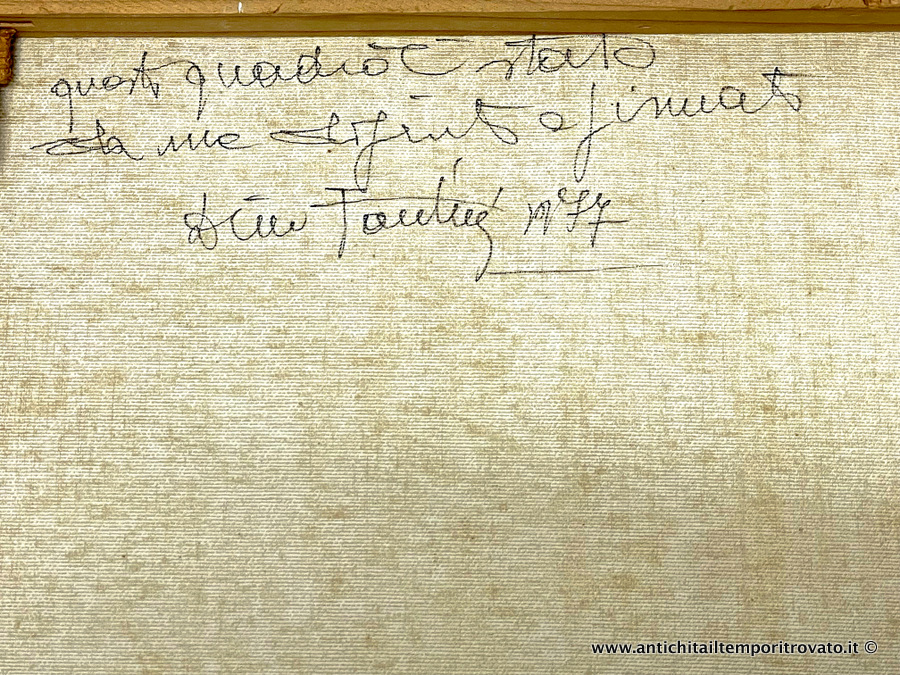 questo quadro è stato
da me dipinto e firmato
Dino Fantini N° 57
www.antichitailtemporitrovato.it ©